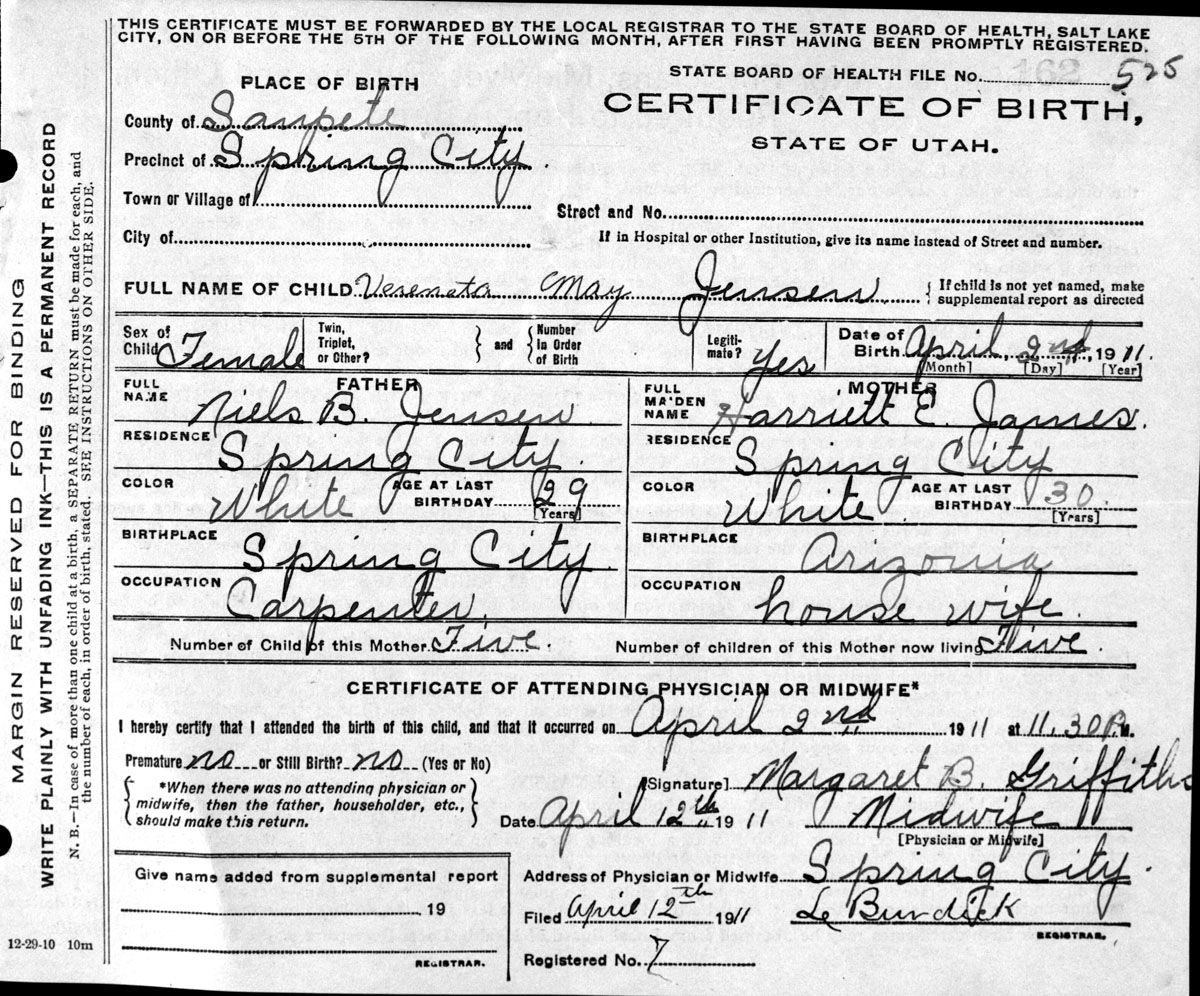 THIS CERTIFICATE MUST BE FORWARDED BY THE LOCAL REGISTRAR TO THE STATE BOARD OF HEALTH, SALT LAKE
CITY, ON OR BEFORE THE 5TH OF THE FOLLOWING MONTH, AFTER FIRST HAVING BEEN PROMPTLY REGISTERED.
STATE BOARD OF HEALTH FILE No. 162 525
PLACE OF BIRTH
CERTIFICATE OF BIRTH,
STATE OF UTAH.
County of Sanpete
Precinct of Spring City
Town or Village of
Street and No.
City of
If in Hospital or other Institution, give its name instead of Street and number.
FULL NAME OF CHILD May Jensen { If child is not yet named, make supplemental report as directed
Sex of Child Female Twin, Triplet, or Other? } and { Number in Order of Birth Legitimate? Yes Date of Birth April 2nd, 1911.
[Month] [Day] [Year]
FATHER
FULL NAME Niels B. Jensen
RESIDENCE Spring City.
COLOR White AGE AT LAST BIRTHDAY 29 [Years]
BIRTHPLACE Spring City
OCCUPATION Carpenter
MOTHER
FULL MAIDEN NAME Harriett E. James.
RESIDENCE Spring City
COLOR White AGE AT LAST BIRTHDAY 30 [Years]
BIRTHPLACE Arizonia
OCCUPATION house wife.
Number of Child of this Mother Five. Number of children of this Mother now living Five.
CERTIFICATE OF ATTENDING PHYSICIAN OR MIDWIFE*
I hereby certify that I attended the birth of this child, and that it occurred on April 2nd 1911 at 11.30 P.M.
Premature no or Still Birth? no (Yes or No)
{ *When there was no attending physician or
midwife, then the father, householder, etc.,
should make this return. }
[Signature] Margaret B. Griffiths
Date April 12th 1911 Midwife
[Physician or Midwife]
Give name added from supplemental report
19
REGISTRAR.
Address of Physician or Midwife Spring City.
Filed April 12th 1911 Burdick
REGISTRAR.
Registered No. 7
MARGIN RESERVED FOR BINDING
WRITE PLAINLY WITH UNFADING INK—THIS IS A PERMANENT RECORD
N. B.—In case of more than one child at a birth, a SEPARATE RETURN must be made for each, and
the number of each, in order of birth, stated. SEE INSTRUCTIONS ON OTHER SIDE.
12-29-10 10m